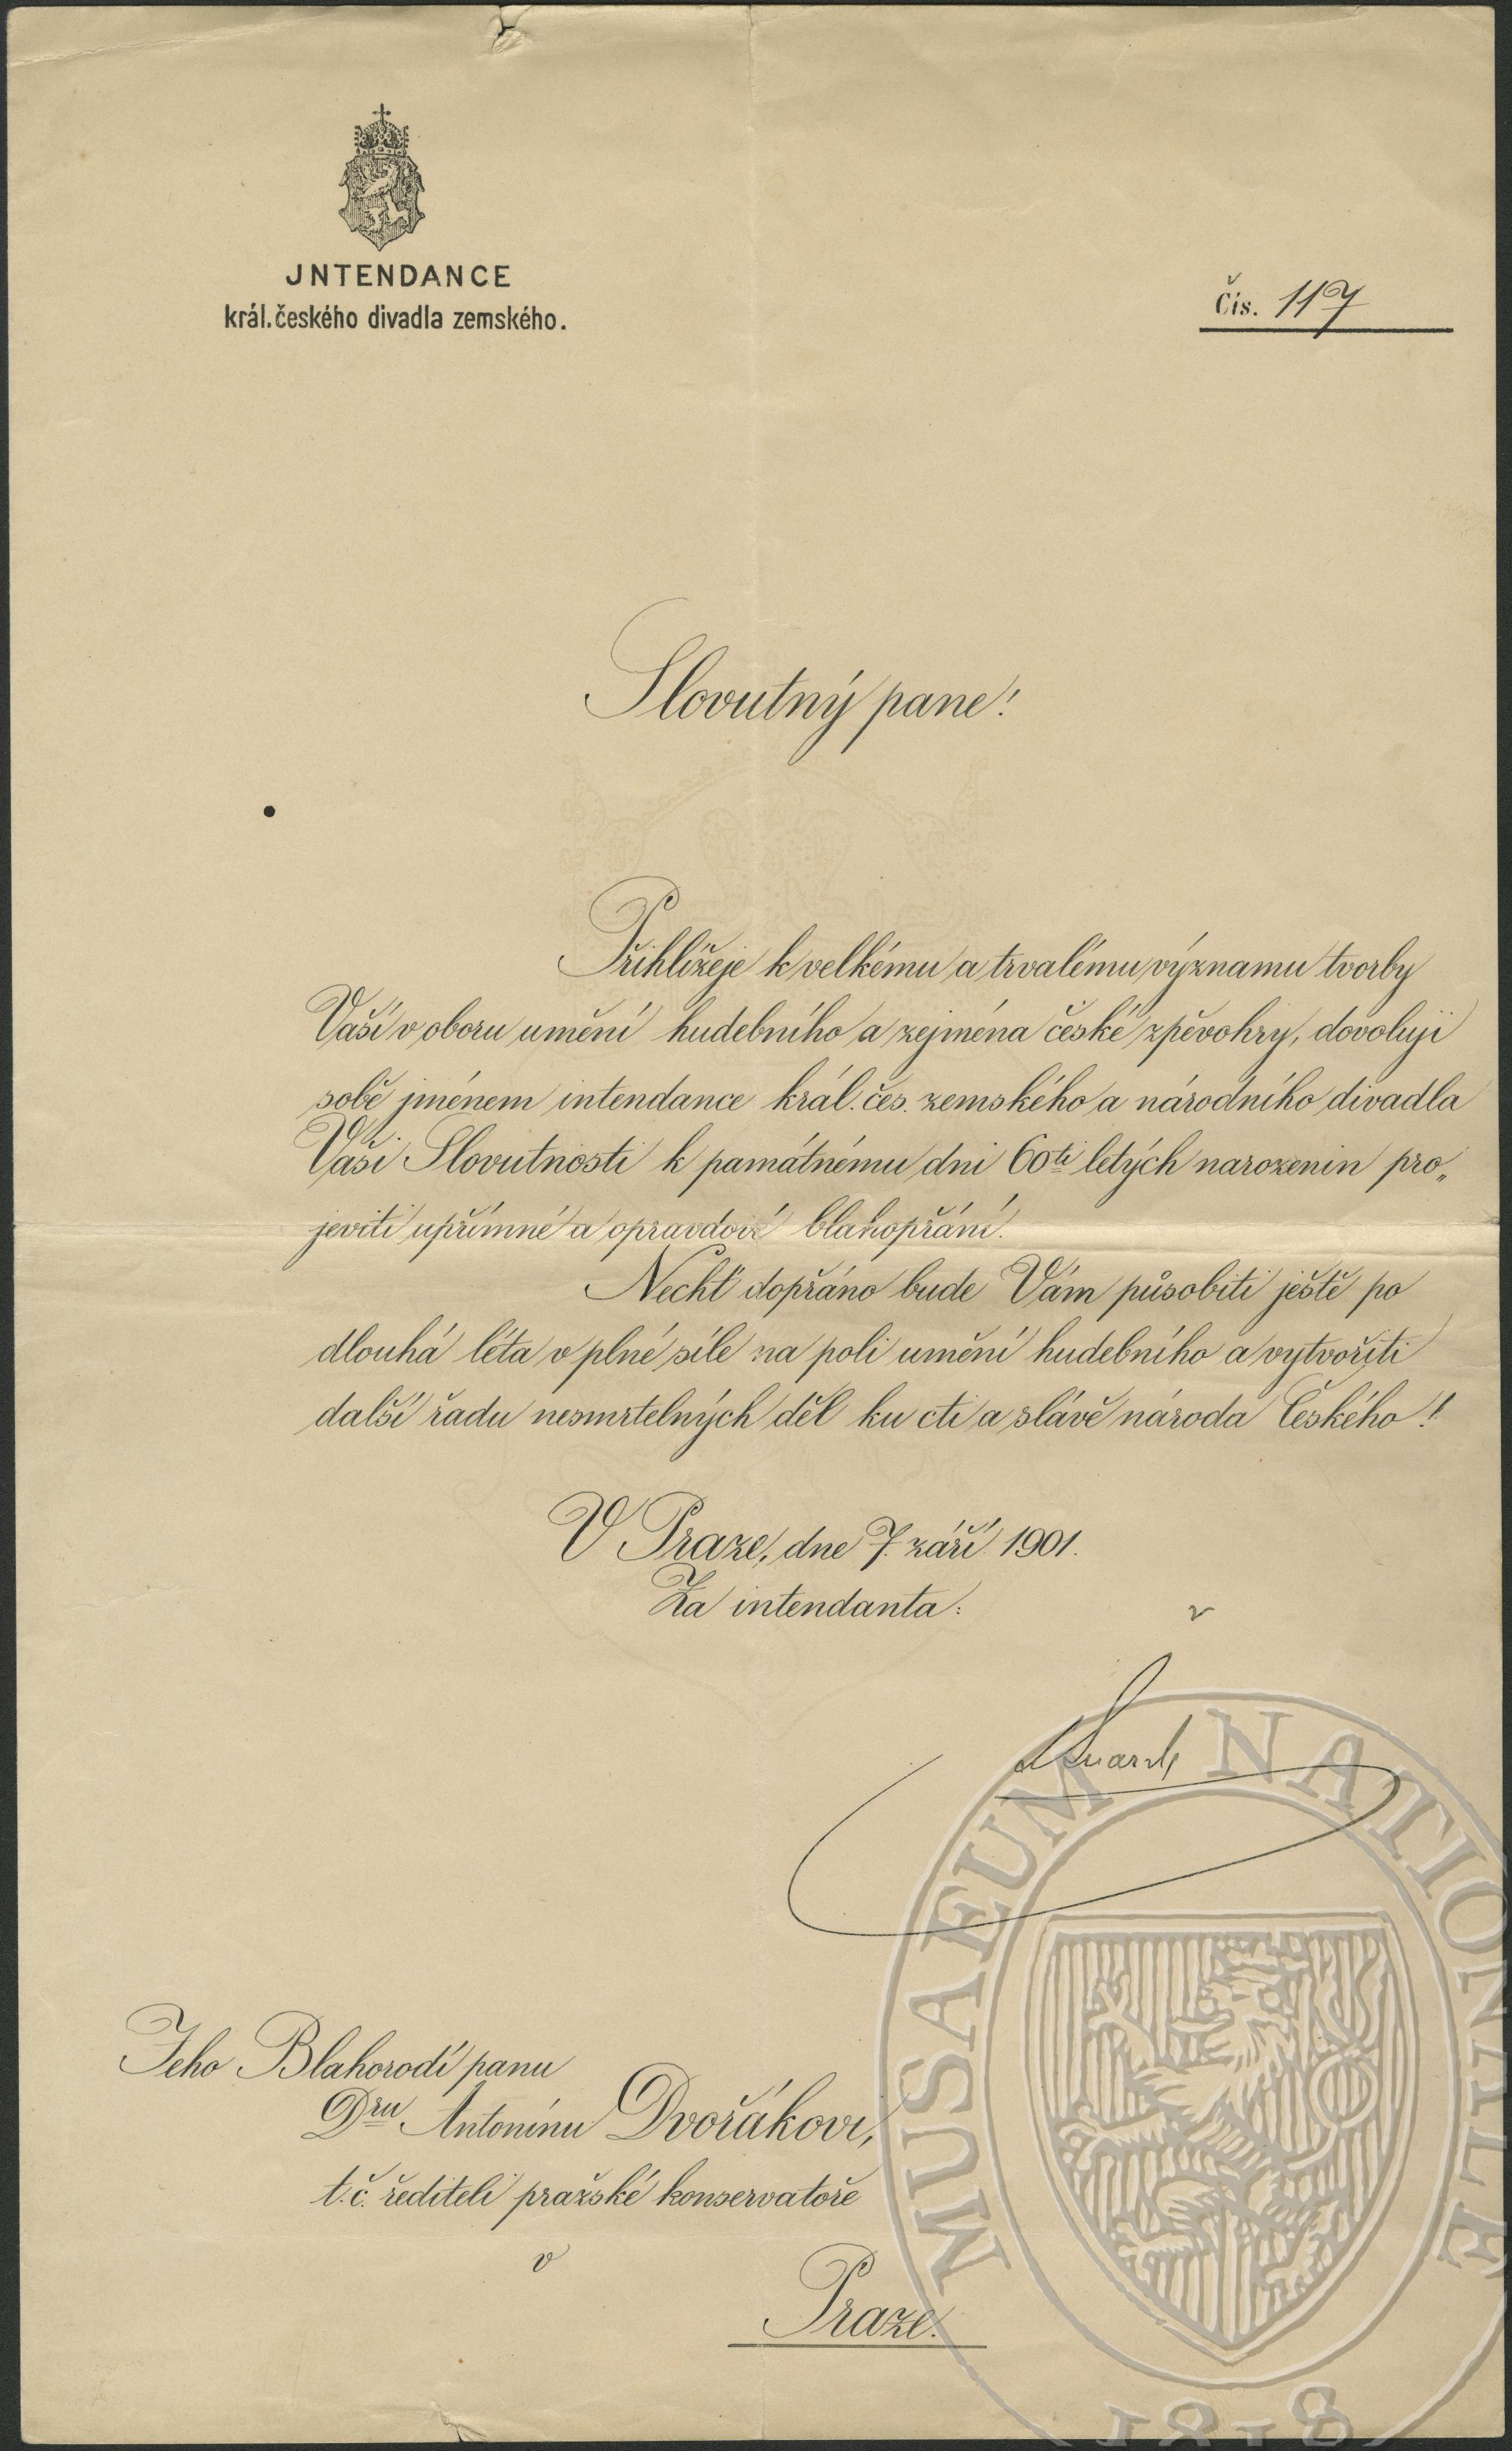 JNTENDANCE
král. českého divadla zemského.
Čís. 117
Slovutný pane!
Přihlížeje k velkému a trvalému významu tvorby
Vaší v oboru umění hudebního a zejména české zpěvohry, dovoluji
sobě jménem intendance král. čes. zemského a národního divadla
Vaší Slovutnosti k památnému dni 60ti letých narozenin pro„
jeviti upřímné a opravdové blahopřání.
Nechť dopřáno bude Vám působiti ještě po
dlouhá léta v plné síle na poli umění hudebního a vytvořiti
další řadu nesmrtelných děl ku cti a slávě národa Českého!
V Praze, dne 7. září 1901.
Za intendanta:
Jeho Blahorodí panu
Dru Antonínu Dvořákovi,
t. č. řediteli pražské konservatoře
v
Praze.
MUSAEUM NATIONALE
1818